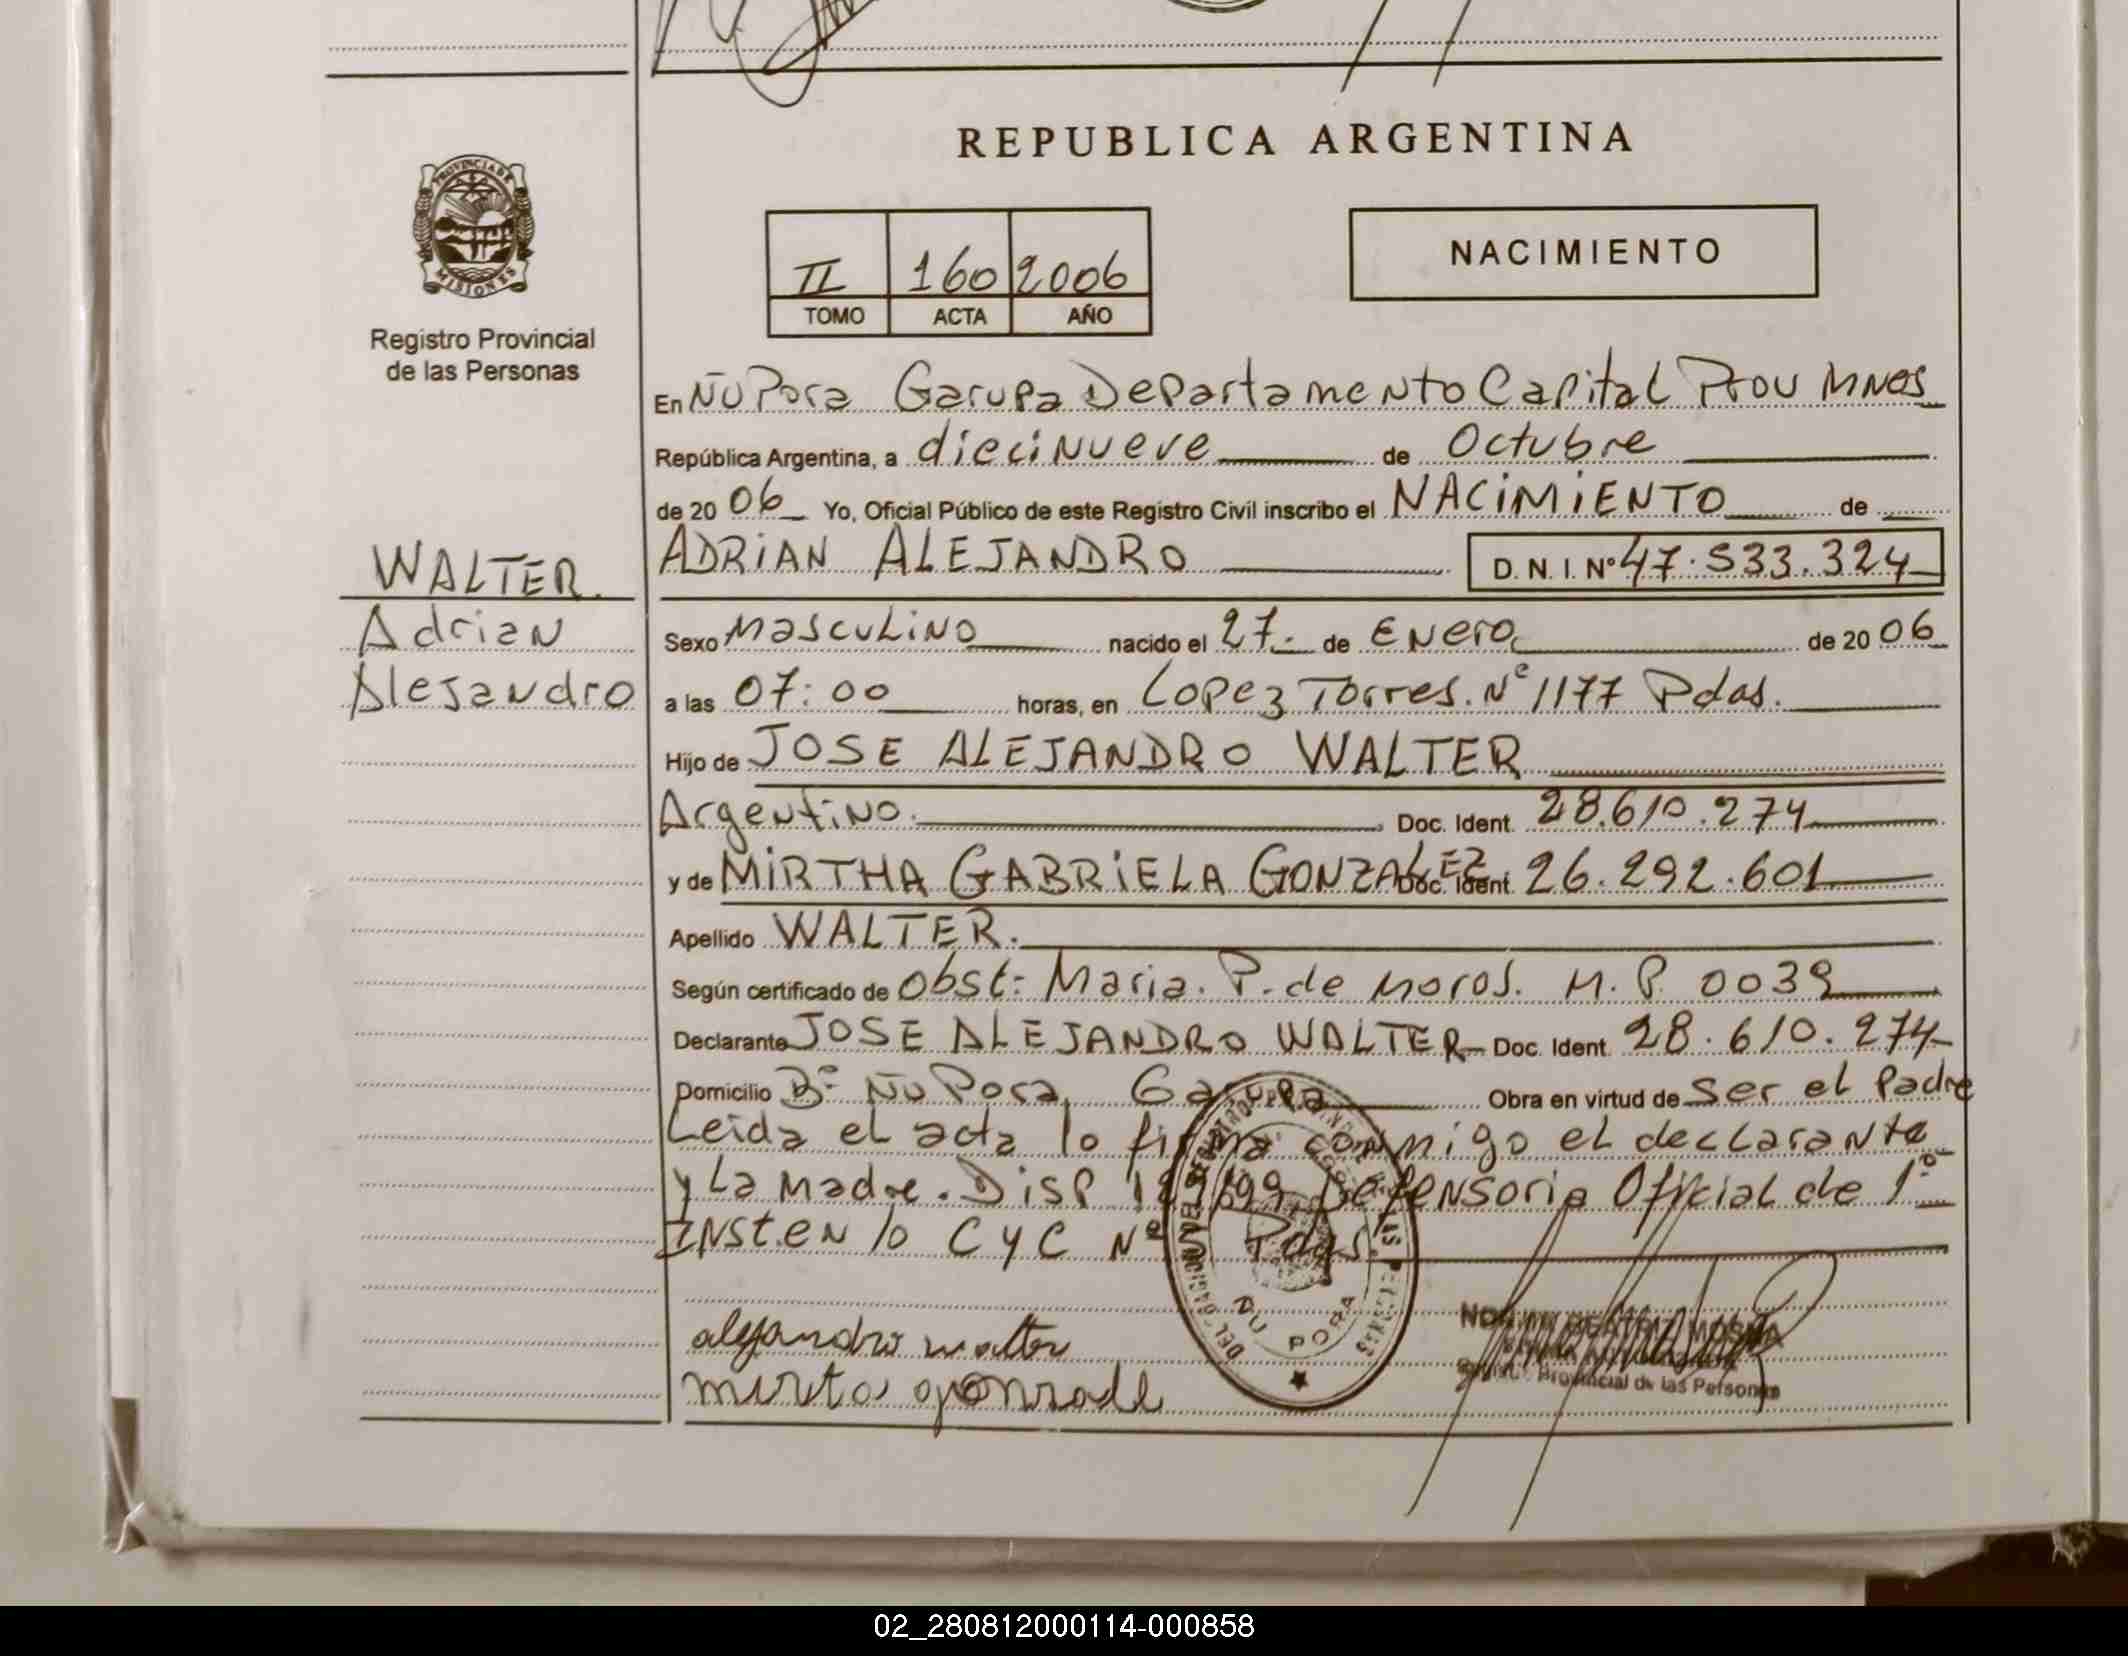 REPUBLICA ARGENTINA
PROVINCIA DE MISIONES
Registro Provincial
de las Personas
II 160 2006
TOMO ACTA AÑO
NACIMIENTO
En ÑU Pora Garupa Departamento Capital Prov MNES
República Argentina, a diecinueve de Octubre
de 20 06 Yo, Oficial Público de este Registro Civil inscribo el NACIMIENTO de
WALTER.
Adrian
Alejandro
ADRIAN ALEJANDRO D. N. I. Nº 47.533.324
Sexo Masculino nacido el 27. de Enero de 20 06
a las 07:00 horas, en Lopez Torres. Nº 1177 Pdas.
Hijo de JOSE ALEJANDRO WALTER
Argentino. Doc. Ident. 28.610.274
y de MIRTHA GABRIELA GONZALEZ Doc. Ident. 26.292.601
Apellido WALTER.
Según certificado de Obst: Maria. P. de Moros. M. P. 0039
Declarante JOSE ALEJANDRO WALTER Doc. Ident. 28.610.274
Domicilio Bº ÑU Pora Garupa Obra en virtud de ser el Padre
Leida el acta lo firma conmigo el declarante
y La madre. Disp Defensoria Oficial de 1º
INST. en lo C y C Nº Pdas.
ÑU PORA
alejandro walter
mirta
Provincial de las Personas
02_280812000114-000858